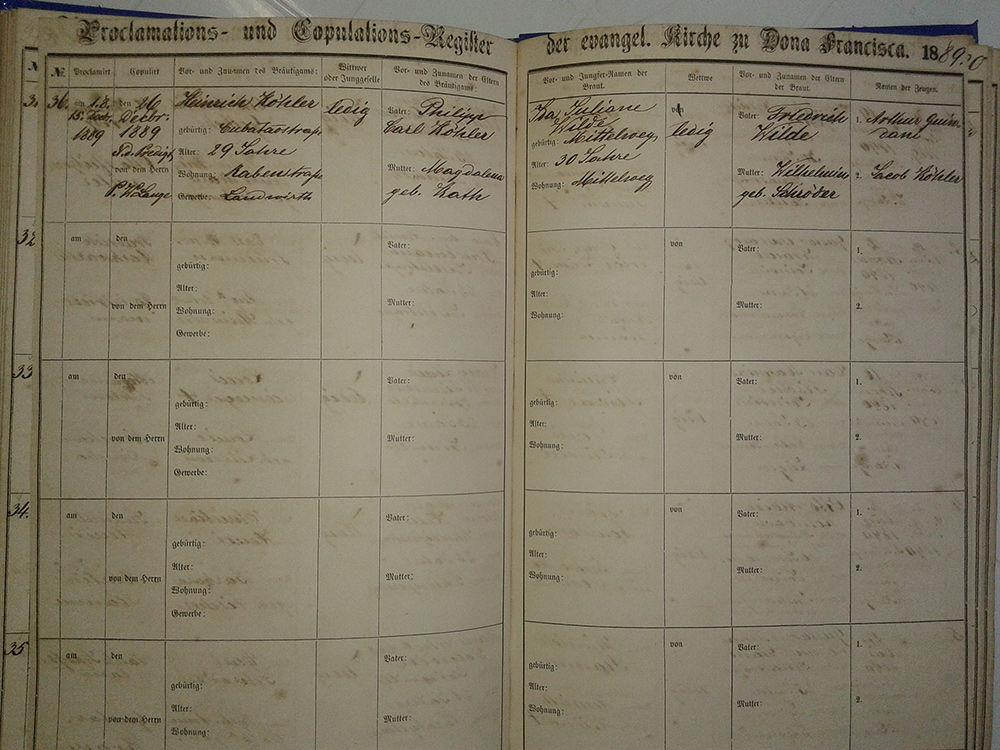 Proclamations- und Copulations-Register der evangel. Kirche zu Dona Francisca. 1889.90
№ Proclamirt Copulirt Vor- und Zunamen des Bräutigams: Wittwer oder Junggeselle Vor- und Zunamen der Eltern des Bräutigams: Vor- und Jungfer-Namen der Braut. Wittwe Vor- und Zunamen der Eltern der Braut. Namen der Zeugen.
36.
am 1. 8.
15. Dec.
1889
den 26
Decbr.
1889
von dem Herrn
Heinrich Köhler
gebürtig: Cubataostraße
Alter: 29 Jahre
Wohnung: Rabenstraße
Gewerbe: Landwirth
ledig
Vater: Philipp
Carl Köhler
Mutter: Magdalena
geb. Rath
Ida Juliane
Wilde
gebürtig: Mittelweg
Alter: 30 Jahre
Wohnung: Mittelweg
von
ledig
Vater: Friedrich
Wilde
Mutter: Wilhelmine
geb. Schröder
1. Arthur
2. Jacob Köhler
32
am den Vater: von Vater: 1.
gebürtig: gebürtig:
Alter: Alter:
von dem Herrn Mutter: Mutter: 2.
Wohnung: Wohnung:
Gewerbe:
33
am den Vater: von Vater: 1.
gebürtig: gebürtig:
Alter: Alter:
von dem Herrn Mutter: Mutter: 2.
Wohnung: Wohnung:
Gewerbe:
34.
am den Vater: von Vater: 1.
gebürtig: gebürtig:
Alter: Alter:
von dem Herrn Mutter: Mutter: 2.
Wohnung: Wohnung:
Gewerbe:
35
am den Vater: von Vater: 1.
gebürtig: gebürtig:
Alter: Alter:
von dem Herrn Mutter: Mutter: 2.
Wohnung: Wohnung: